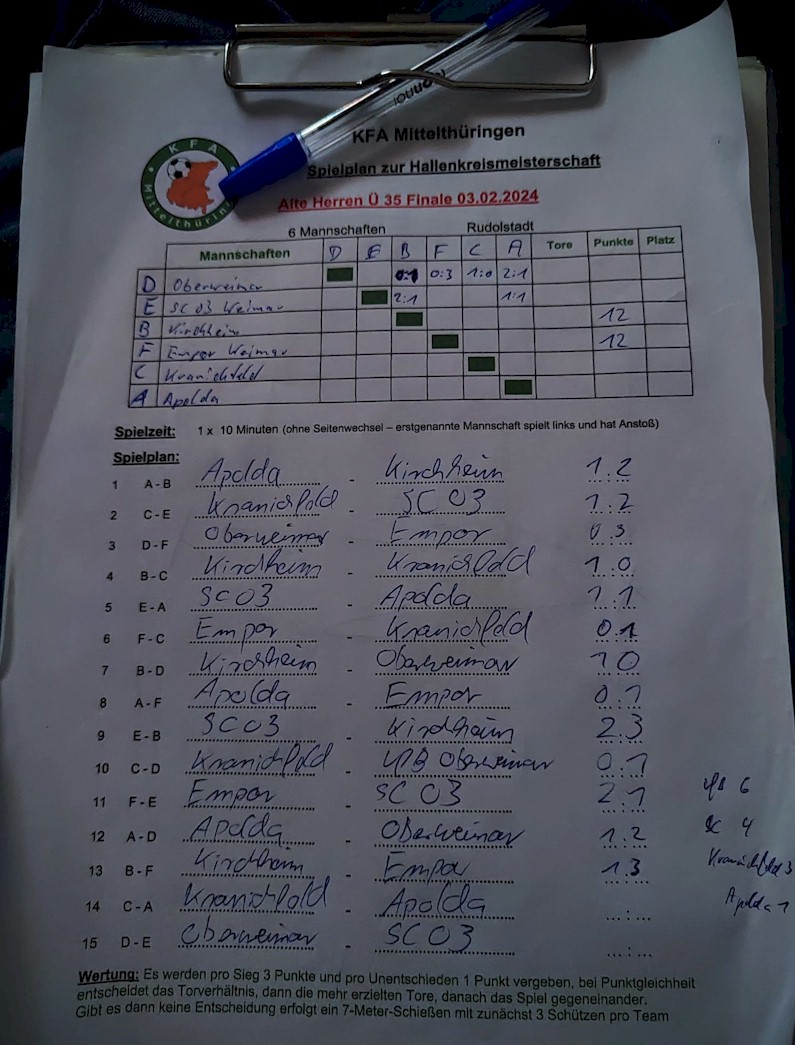 KFA Mittelthüringen
KFA Mittelthüringen
Spielplan zur Hallenkreismeisterschaft
Alte Herren Ü 35 Finale 03.02.2024
6 Mannschaften Rudolstadt
Mannschaften D E B F C A Tore Punkte Platz
D Oberweimar 0:1 0:3 1:0 2:1
E SC 03 Weimar 2:1 1:1
B Kirchheim 12
F Empor Weimar 12
C Kranichfeld
A Apolda
Spielzeit: 1 x 10 Minuten (ohne Seitenwechsel – erstgenannte Mannschaft spielt links und hat Anstoß)
Spielplan:
1 A - B Apolda - Kirchheim 1:2
2 C - E Kranichfeld - SC 03 1:2
3 D - F Oberweimar - Empor 0:3
4 B - C Kirchheim - Kranichfeld 1:0
5 E - A SC 03 - Apolda 1:1
6 F - C Empor - Kranichfeld 0:1
7 B - D Kirchheim - Oberweimar 1:0
8 A - F Apolda - Empor 0:1
9 E - B SC 03 - Kirchheim 2:3
10 C - D Kranichfeld - Oberweimar 0:1
11 F - E Empor - SC 03 2:1 6
12 A - D Apolda - Oberweimar 1:2 SC 4
13 B - F Kirchheim - Empor 1:3 Kranichfeld 3
14 C - A Kranichfeld - Apolda ...:... Apolda 1
15 D - E Oberweimar - SC 03 ...:...
Wertung: Es werden pro Sieg 3 Punkte und pro Unentschieden 1 Punkt vergeben, bei Punktgleichheit
entscheidet das Torverhältnis, dann die mehr erzielten Tore, danach das Spiel gegeneinander.
Gibt es dann keine Entscheidung erfolgt ein 7-Meter-Schießen mit zunächst 3 Schützen pro Team